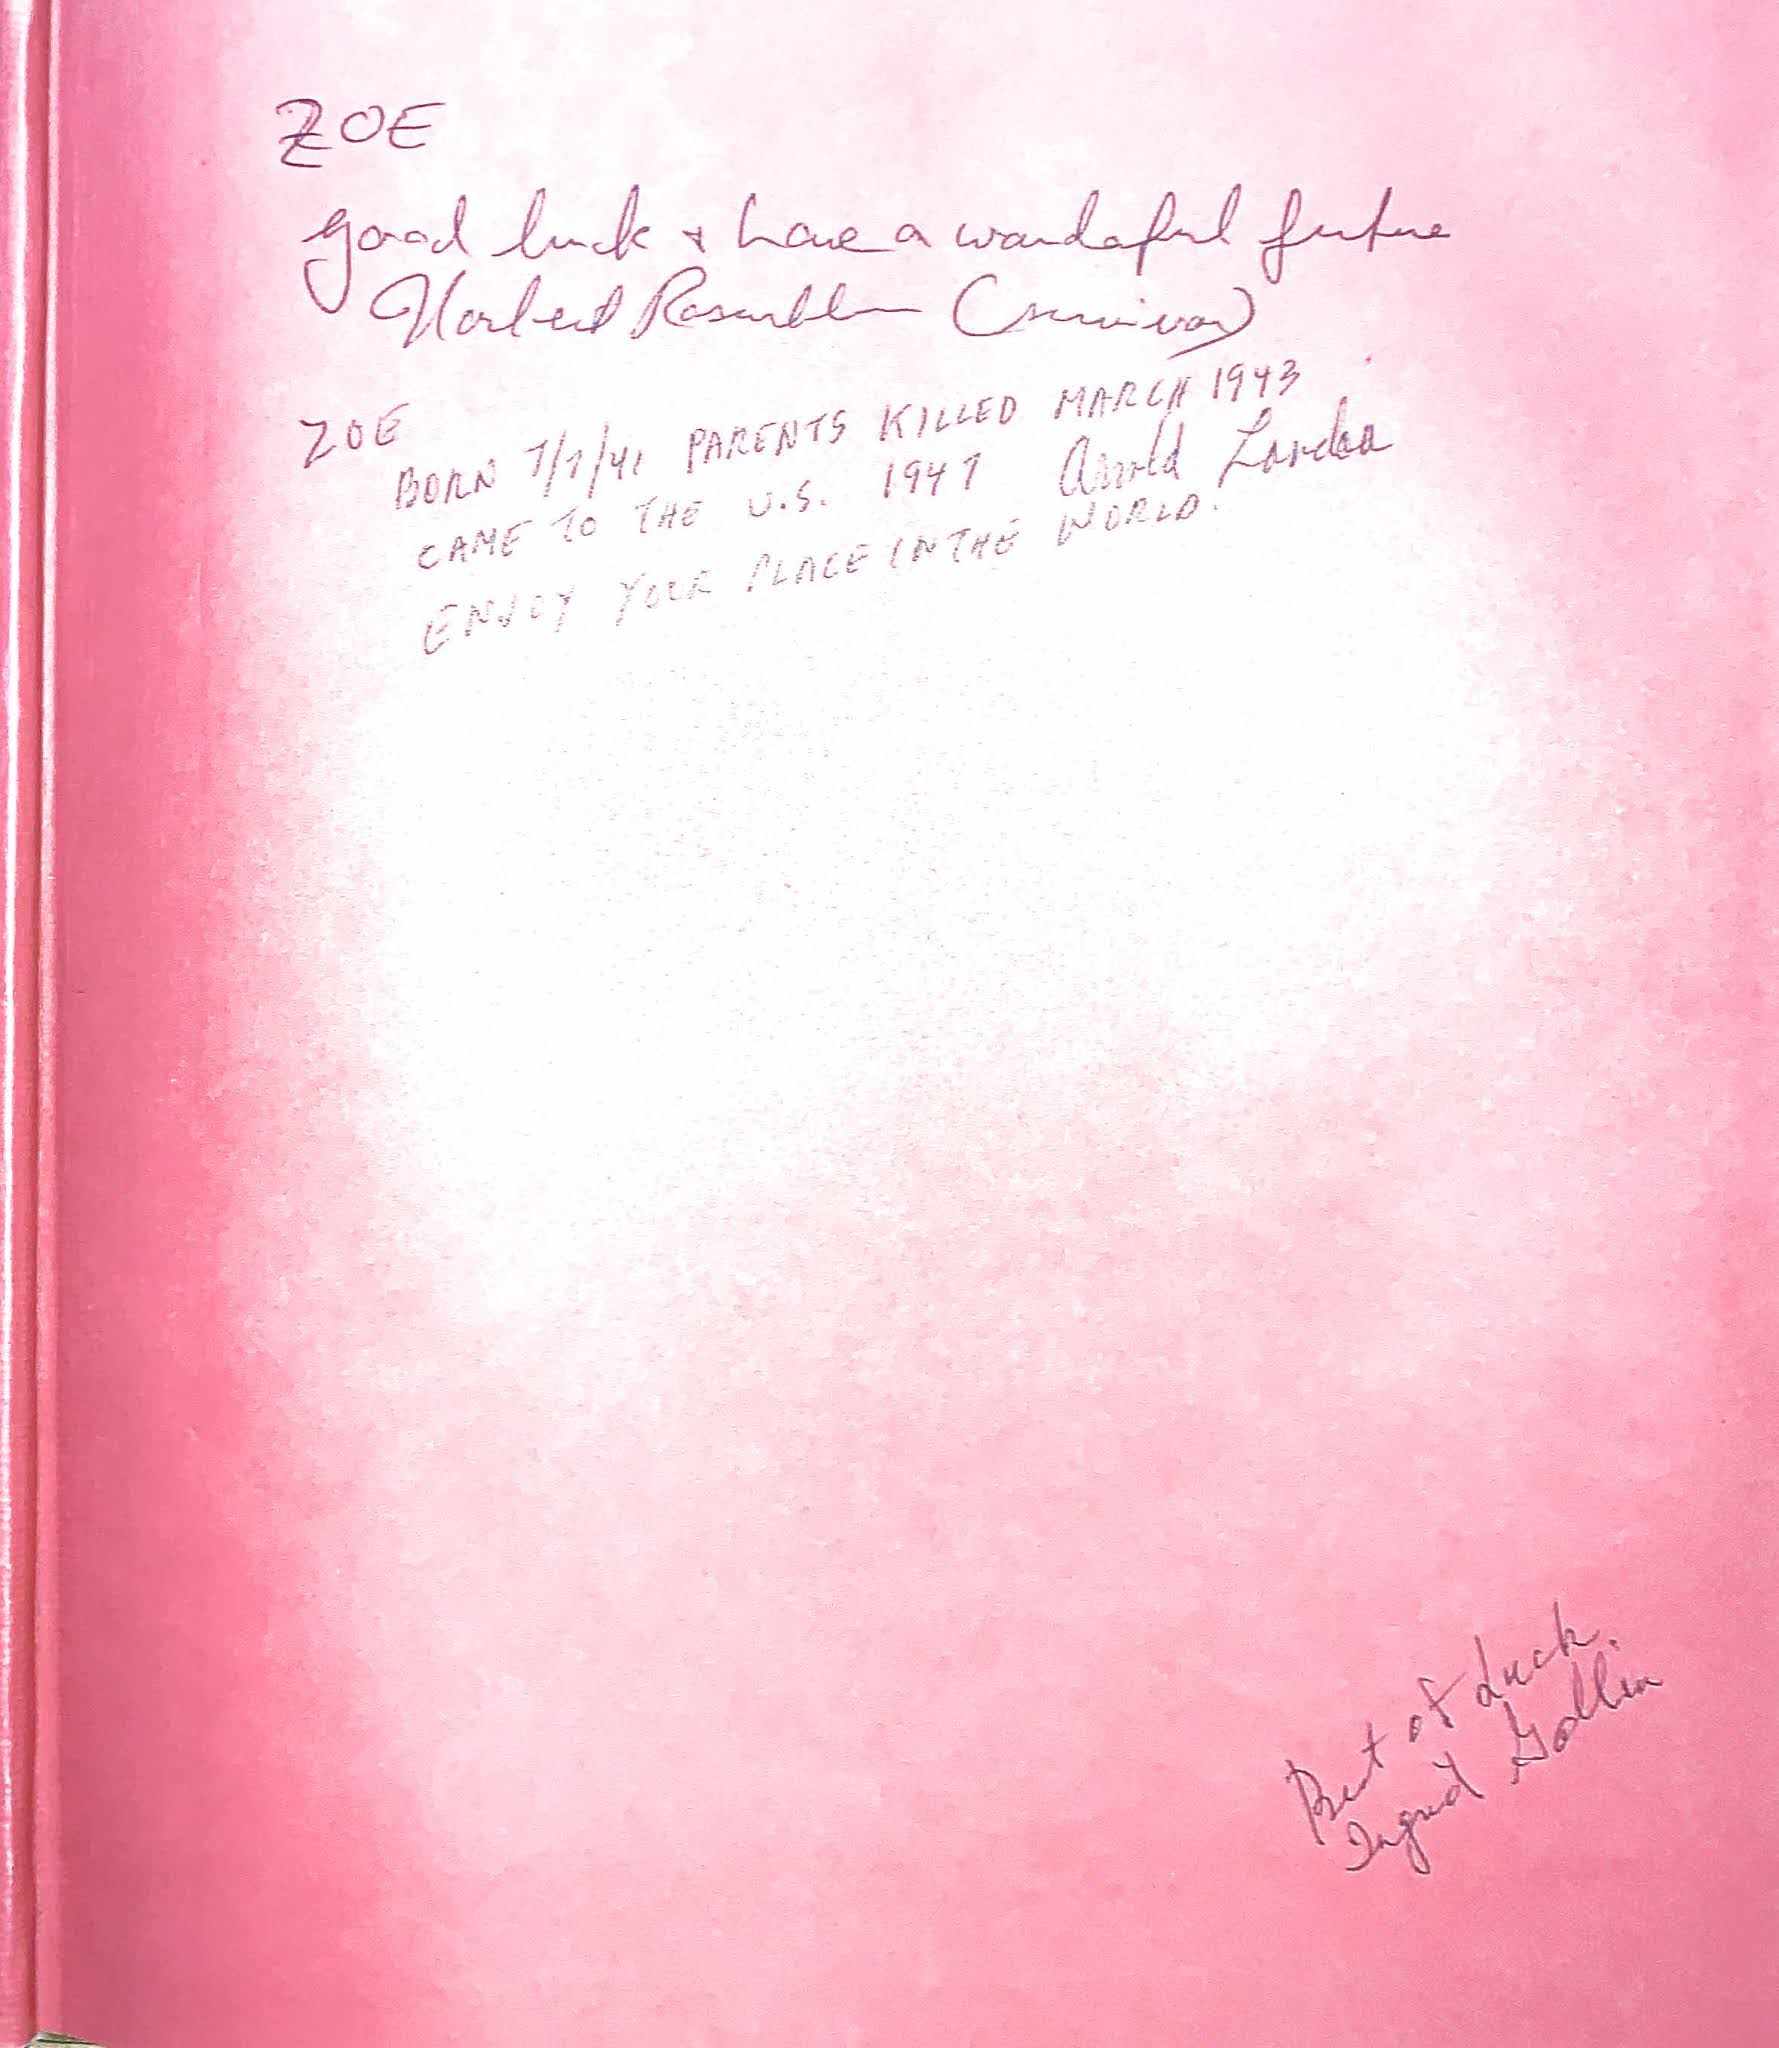 ZOE
good luck + have a wonderful future
Norbert Rosenblum (survivor)
ZOE
BORN 7/7/41 PARENTS KILLED MARCH 1943
CAME TO THE U.S. 1947 Arnold
ENJOY YOUR PLACE IN THE WORLD.
Best of Luck.
Ingrid